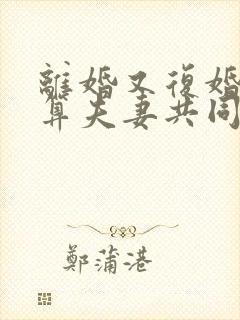 離婚又復婚
算夫妻共同
鄭蒲港